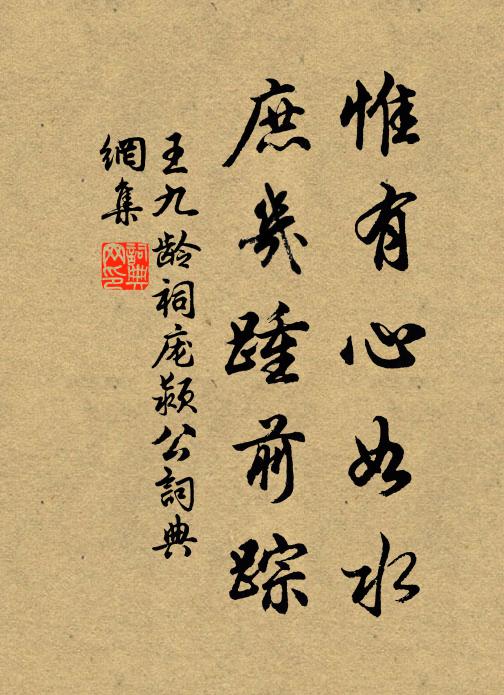 惟有心如水
庶几踵前踪
王九龄祠庞颍公詞典
網集
詞典
网印